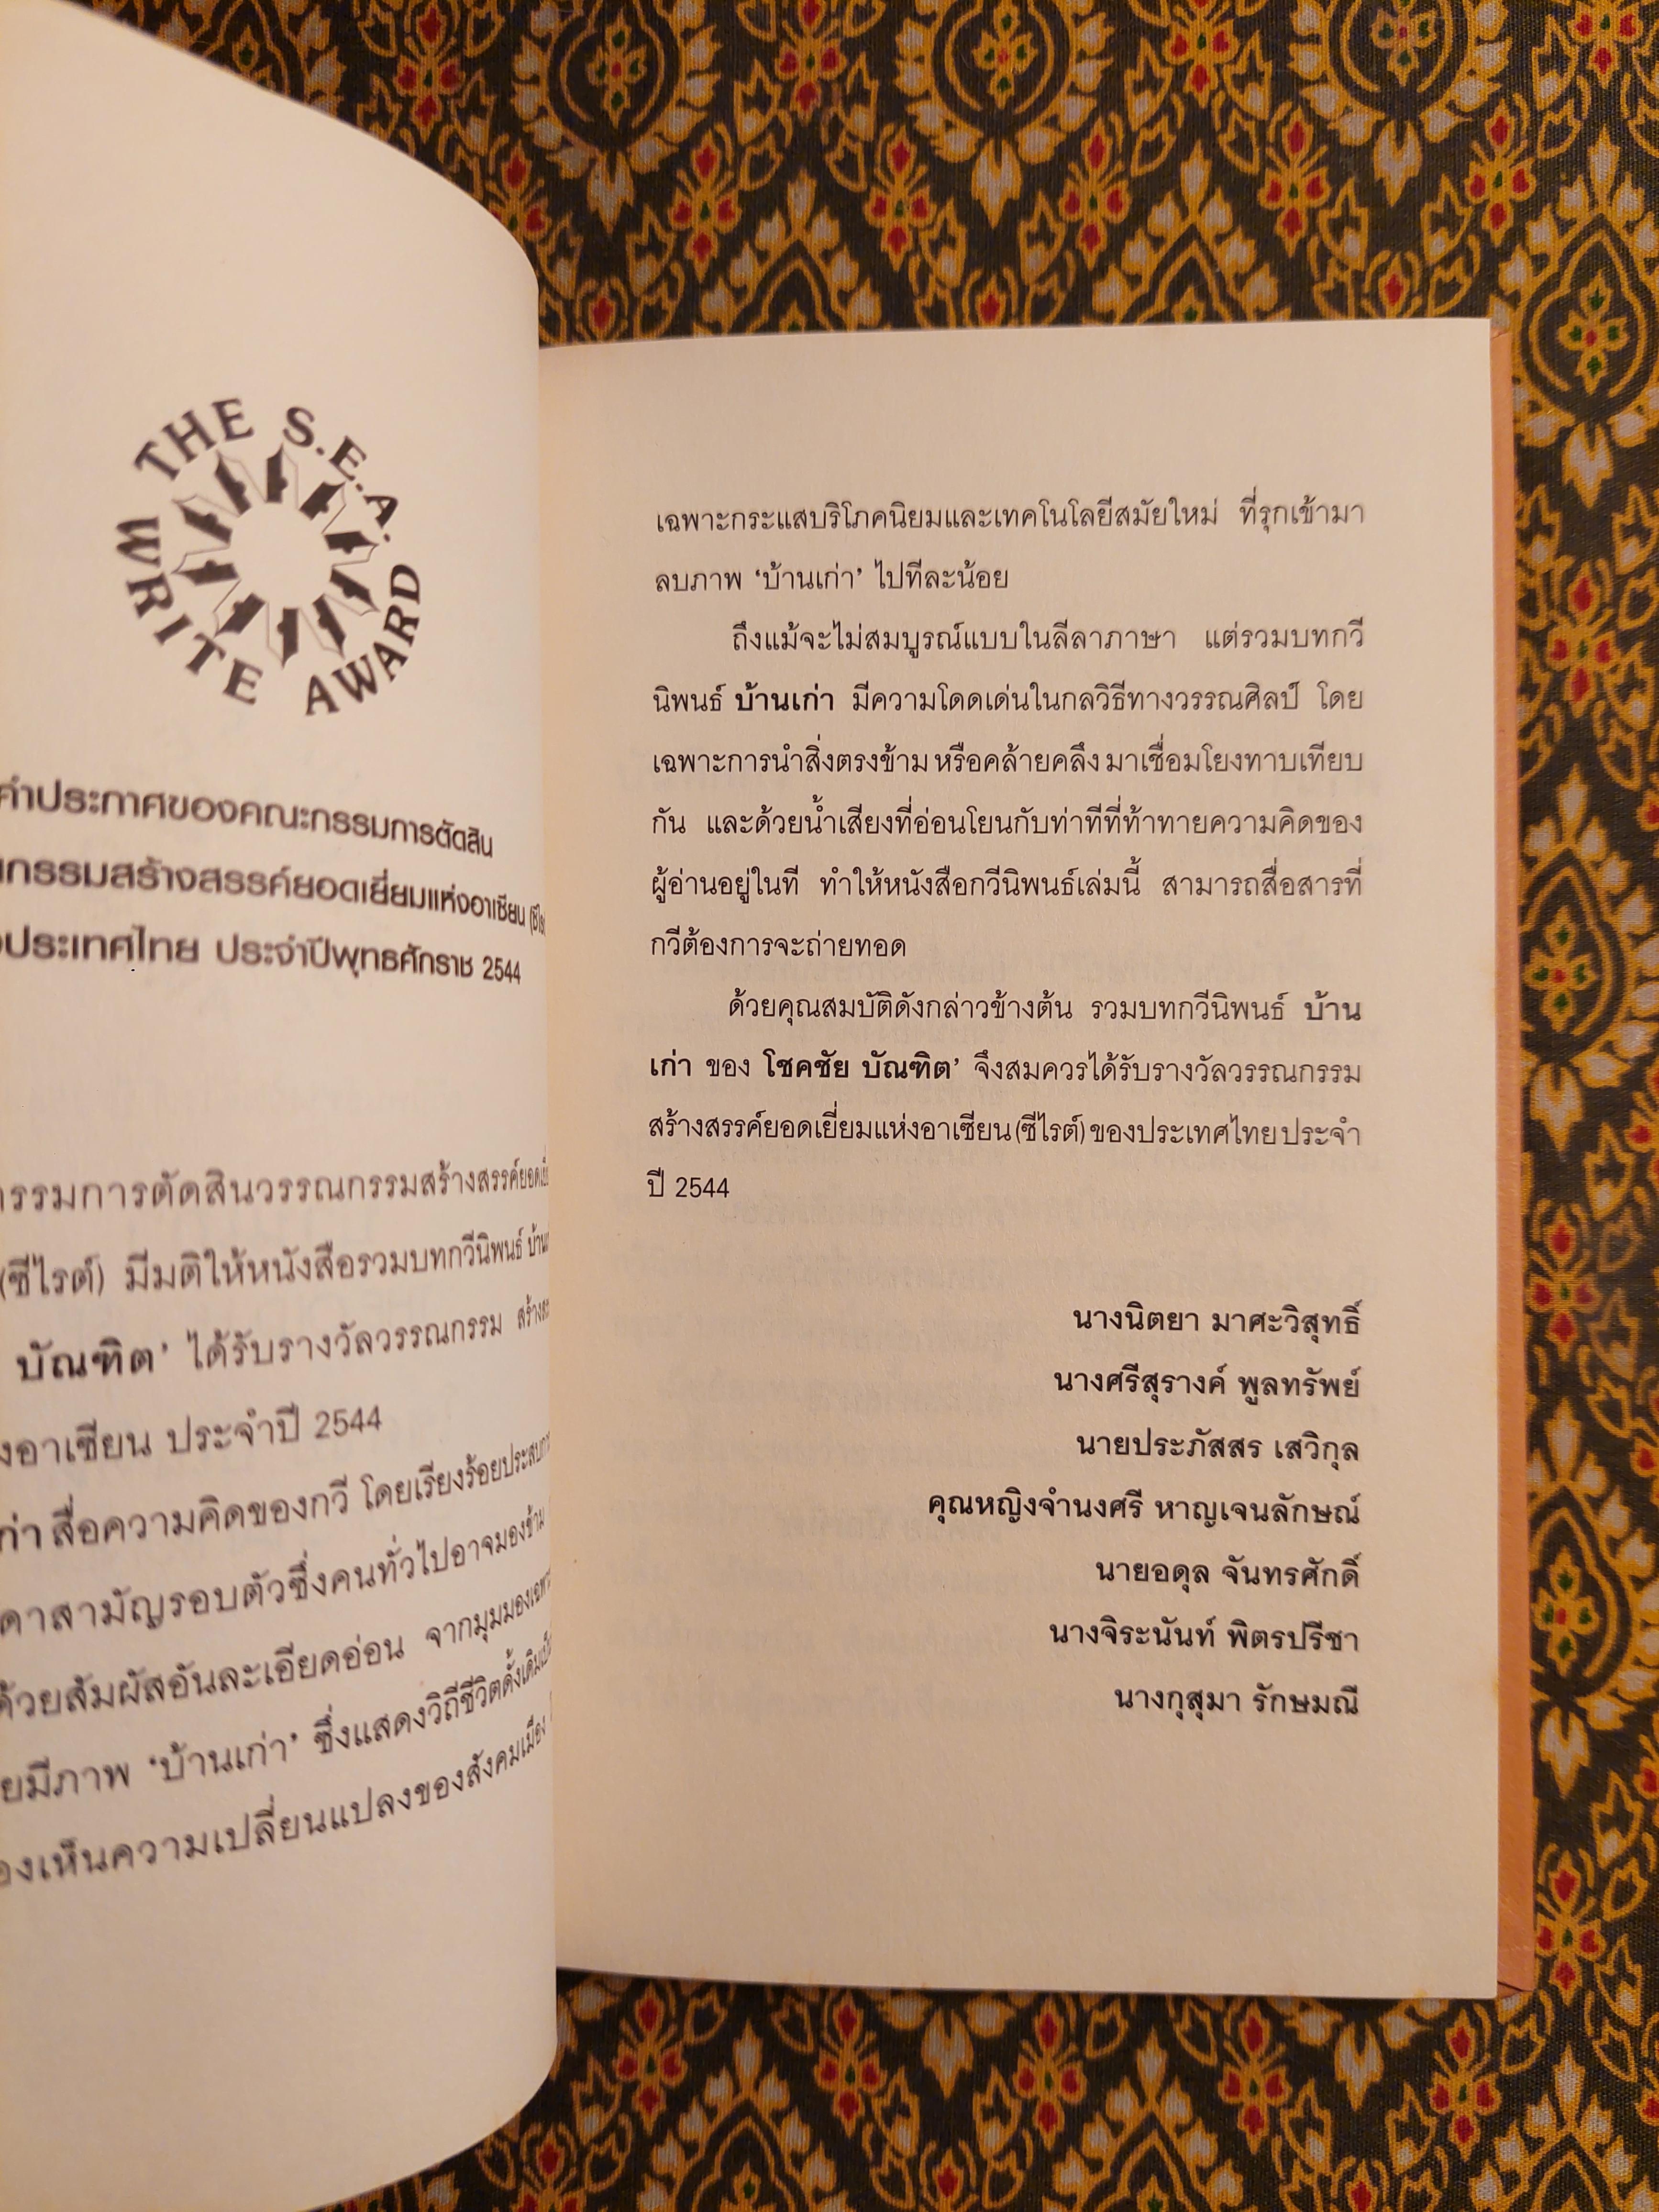 THE S.E.A. WRITE AWARD
คำประกาศของคณะกรรมการตัดสิน
กรรมสร้างสรรค์ยอดเยี่ยมแห่งอาเซียน
ประเทศไทย ประจำปีพุทธศักราช 2544
กรรมการตัดสินวรรณกรรมสร้างสรรค์
(ซีไรต์) มีมติให้หนังสือรวมบทกวีนิพนธ์
บัณฑิต’ ได้รับรางวัลวรรณกรรม
อาเซียน ประจำปี 2544
สื่อความคิดของกวี โดยเรียงร้อย
สามัญรอบตัวซึ่งคนทั่วไปอาจมองข้าม
ด้วยสัมผัสอันละเอียดอ่อน จากมุมมอง
มีภาพ ‘บ้านเก่า’ ซึ่งแสดงวิถีชีวิตดั้งเดิม
เห็นความเปลี่ยนแปลงของสังคมเมือง
เฉพาะกระแสบริโภคนิยมและเทคโนโลยีสมัยใหม่ ที่รุกเข้ามา
ลบภาพ ‘บ้านเก่า’ ไปทีละน้อย
ถึงแม้จะไม่สมบูรณ์แบบในลีลาภาษา แต่รวมบทกวี
นิพนธ์ บ้านเก่า มีความโดดเด่นในกลวิธีทางวรรณศิลป์ โดย
เฉพาะการนำสิ่งตรงข้าม หรือคล้ายคลึง มาเชื่อมโยงทาบเทียบ
กัน และด้วยน้ำเสียงที่อ่อนโยนกับท่าทีที่ท้าทายความคิดของ
ผู้อ่านอยู่ในที ทำให้หนังสือกวีนิพนธ์เล่มนี้ สามารถสื่อสารที่
กวีต้องการจะถ่ายทอด
ด้วยคุณสมบัติดังกล่าวข้างต้น รวมบทกวีนิพนธ์ บ้าน
เก่า ของ โชคชัย บัณฑิต’ จึงสมควรได้รับรางวัลวรรณกรรม
สร้างสรรค์ยอดเยี่ยมแห่งอาเซียน (ซีไรต์) ของประเทศไทย ประจำ
ปี 2544
นางนิตยา มาศะวิสุทธิ์
นางศรีสุรางค์ พูลทรัพย์
นายประภัสสร เสวิกุล
คุณหญิงจำนงศรี หาญเจนลักษณ์
นายอดุล จันทรศักดิ์
นางจิระนันท์ พิตรปรีชา
นางกุสุมา รักษมณี